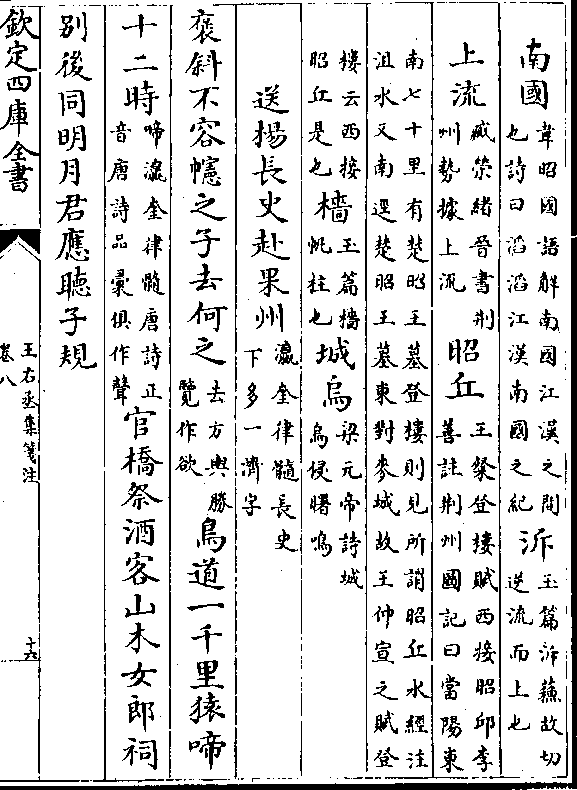 南國韋昭國語解南國江漢之間也詩曰滔滔江漢南國之紀泝玉篇泝蘓故切逆流而上也
上流臧榮緒晉書荆州勢據上流昭丘王粲登樓賦西接昭邱李善註荆州國記曰當陽東
南七十里有楚昭王墓登樓則見所謂昭丘水經注沮水又南逕楚昭王墓東對麥城故王仲宣之賦登
樓云西接昭丘是也檣玉篇檣帆柱也城烏梁元帝詩城烏侵曙鳴
送楊長史赴果州瀛奎律髓長史下多一濟字
褒斜不容幰之子去何之去方輿勝覽作欲鳥道一千里猿啼
十二時啼瀛奎律髓唐詩正音唐詩品彚俱作聲官橋祭酒客山木女郎祠
别後同明月君應聽子規
欽定四庫全書
王右丞集箋注
卷八
十六